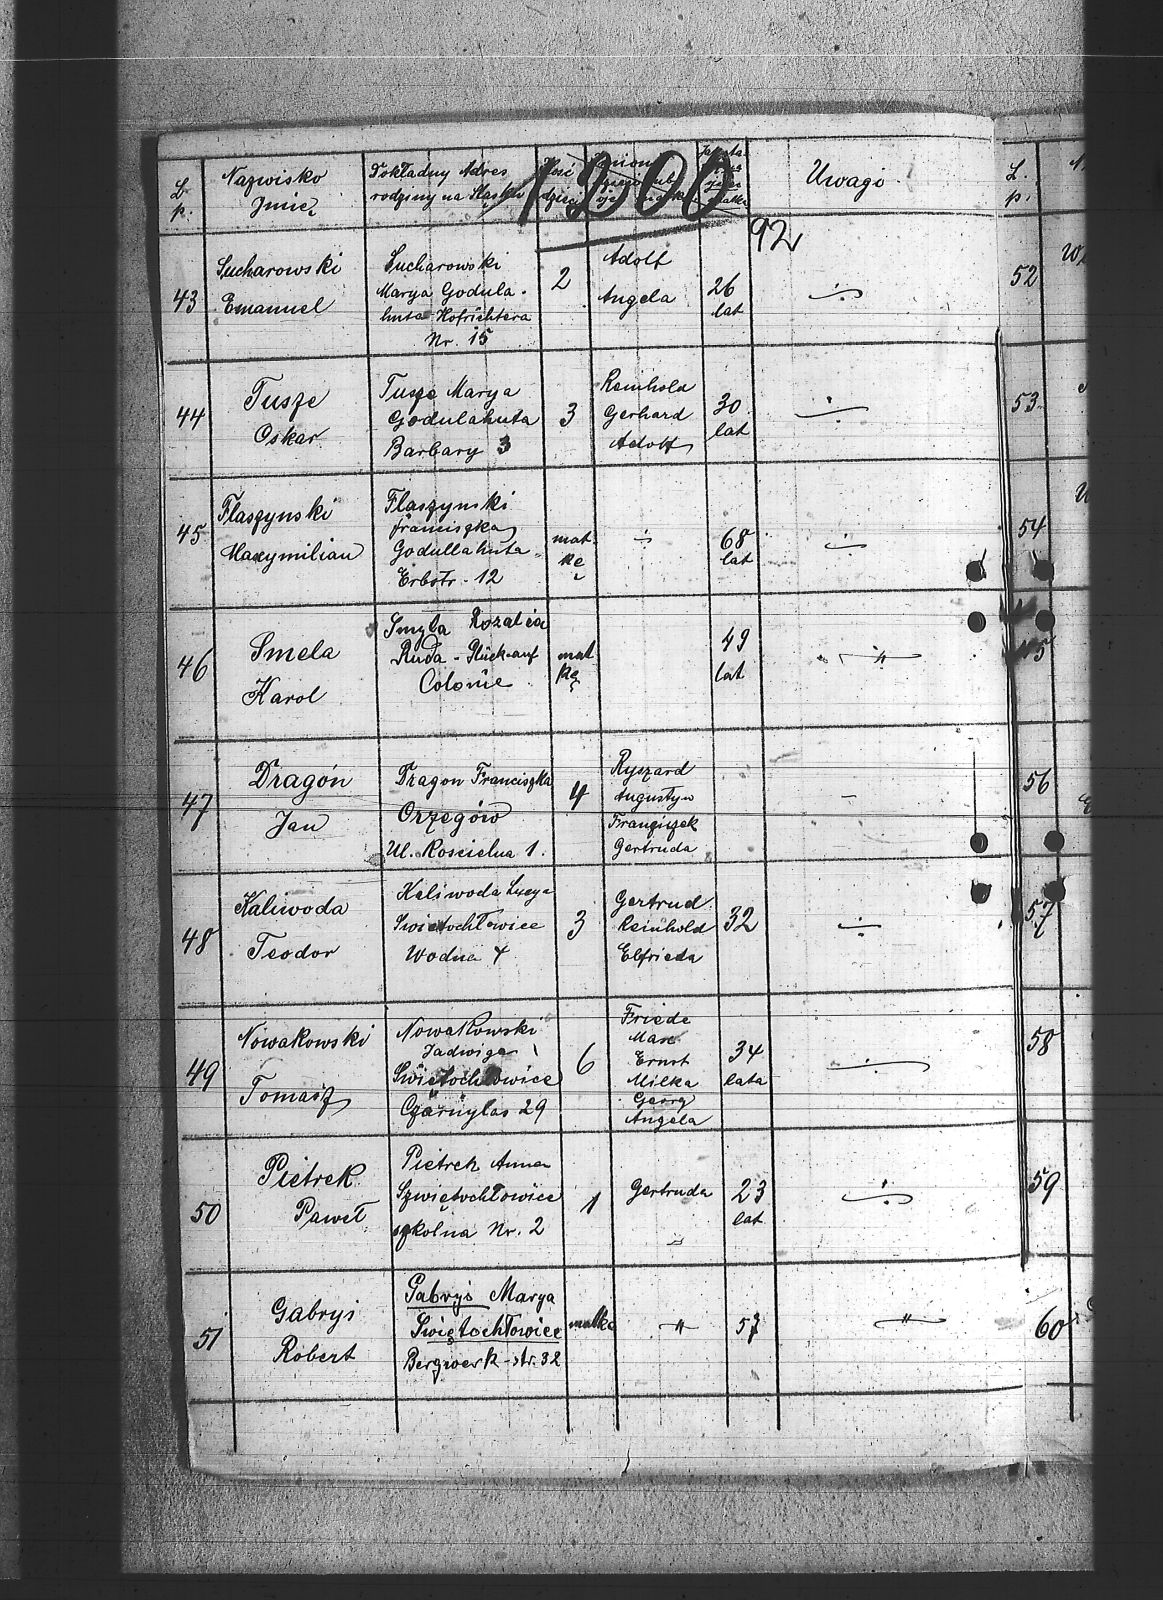 L. p.
Nazwisko
Imię
Dokładny Adres
rodziny na Śląsku
1300
Uwagi
92
43
Sucharowski
Emanuel
Sucharowski
Marya Godula-
huta Hofrichtera
Nr. 15
2
Adolf
Angela
26
lat
44
Tusze
Oskar
Tusze Marya
Godulahuta
Barbary 3
3
Reinhold
Gerhard
Adolf
30
lat
45
Flaszynski
Maxymilian
Flaszynski
Franciszka
Godullahuta
Erbstr. 12
mat-
kę
68
lat
46
Smela
Karol
Smyla Rozalia
Ruda - Glück-auf
Colonie
mat
kę
49
lat
47
Dragón
Jan
Dragon Franciszka
Orzegów
Ul. Koscielna 1.
4
Ryszard
Augustyn
Franziszek
Gertruda
48
Kaliwoda
Teodor
Kaliwoda Lucya
Swietochłowice
Wodna 4
3
Gertrud
Reinhold
Elfrieda
32
49
Nowakowski
Tomasz
Nowakowski
Jadwiga
Swiętochłowice
Czarnylas 29
6
Friede
Max
Ernst
Milka
Georg
Angela
34
lata
50
Pietrek
Paweł
Pietrek Anna
Szwiętochłowice
szkolna Nr. 2
1
Gertruda
23
lat
51
Gabryś
Robert
Gabryś Marya
Swiętochłowice
Bergwerk-str. 32
matkę
57
L. p.
52
53
54
55
56
57
58
59
60